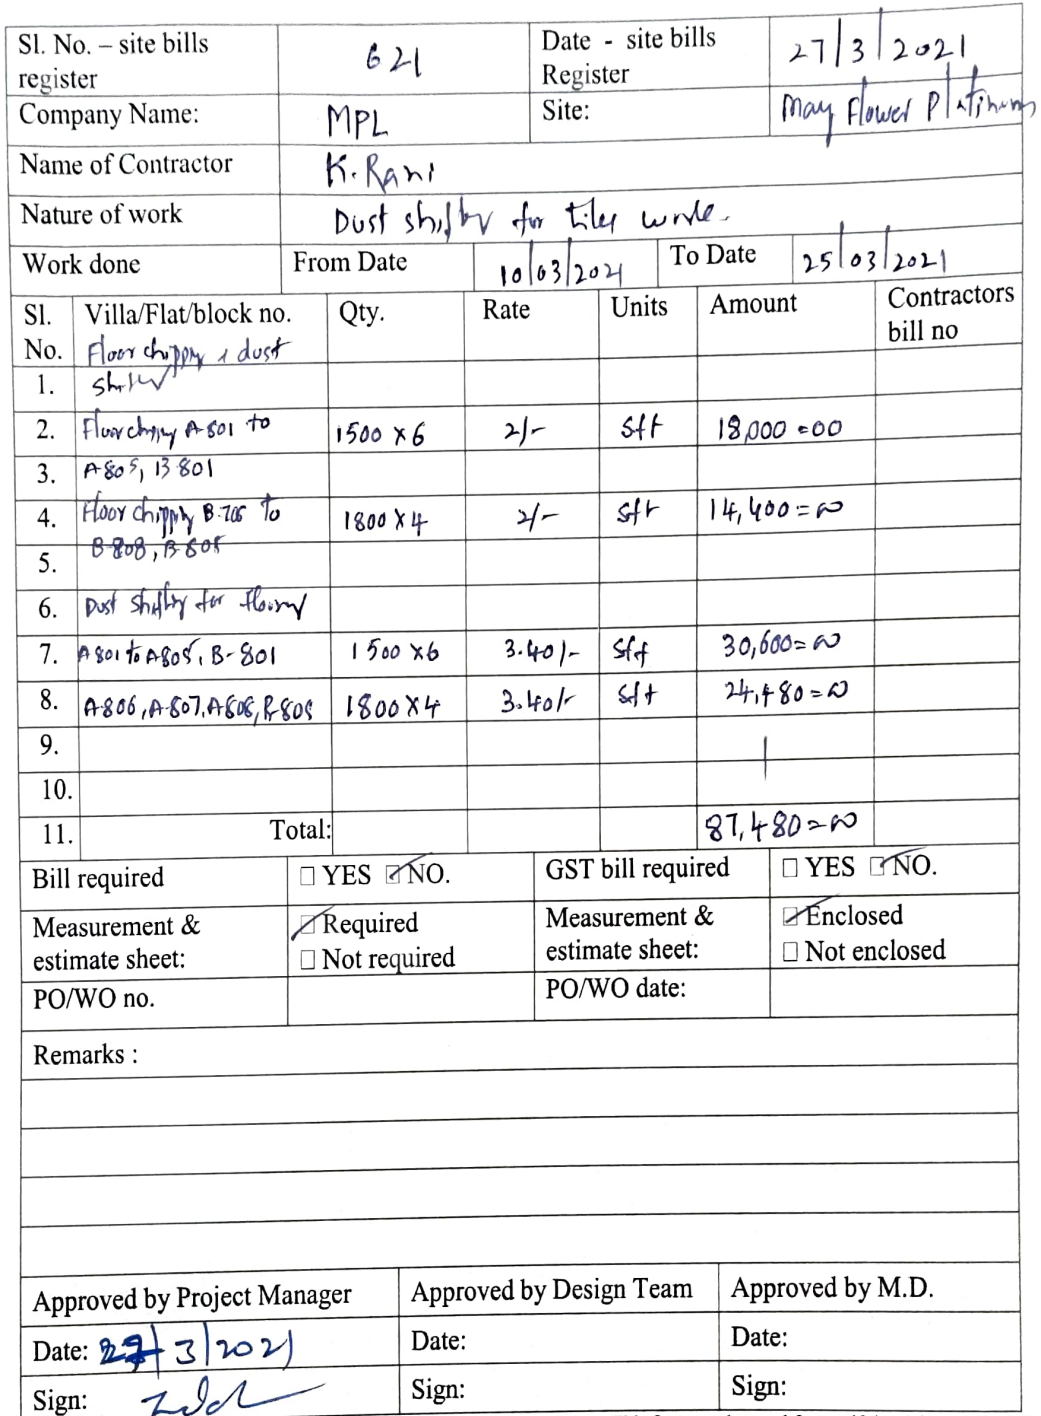 Sl. No. – site bills register 621 Date - site bills Register 27/3/2021
Company Name: MPL Site: May Flower Platinum
Name of Contractor K. Rani
Nature of work Dust shifting for tiles work.
Work done From Date 10/03/2021 To Date 25/03/2021
Sl. No. Villa/Flat/block no. Qty. Rate Units Amount Contractors bill no
Floor chipping & dust
1. shifting
2. Floor chipping A-801 to 1500 x 6 2/- sft 18,000=00
3. A 805, B 801
4. Floor chipping to 1800 x 4 2/- sft 14,400=00
5. B-808,
6. Dust shifting for flooring
7. A 801 to A 805, B-801 1500 x 6 3.40/- sft 30,600=00
8. A-806, A-807, A 808, 1800 x 4 3.40/- sft 24,480=00
9.
10.
11. Total: 87,480=00
Bill required ☐ YES ☑ NO. GST bill required ☐ YES ☑ NO.
Measurement & estimate sheet: ☑ Required Measurement & estimate sheet: ☑ Enclosed
☐ Not required ☐ Not enclosed
PO/WO no. PO/WO date:
Remarks :
Approved by Project Manager Approved by Design Team Approved by M.D.
Date: 27/3/2021 Date: Date:
Sign: Sign: Sign: